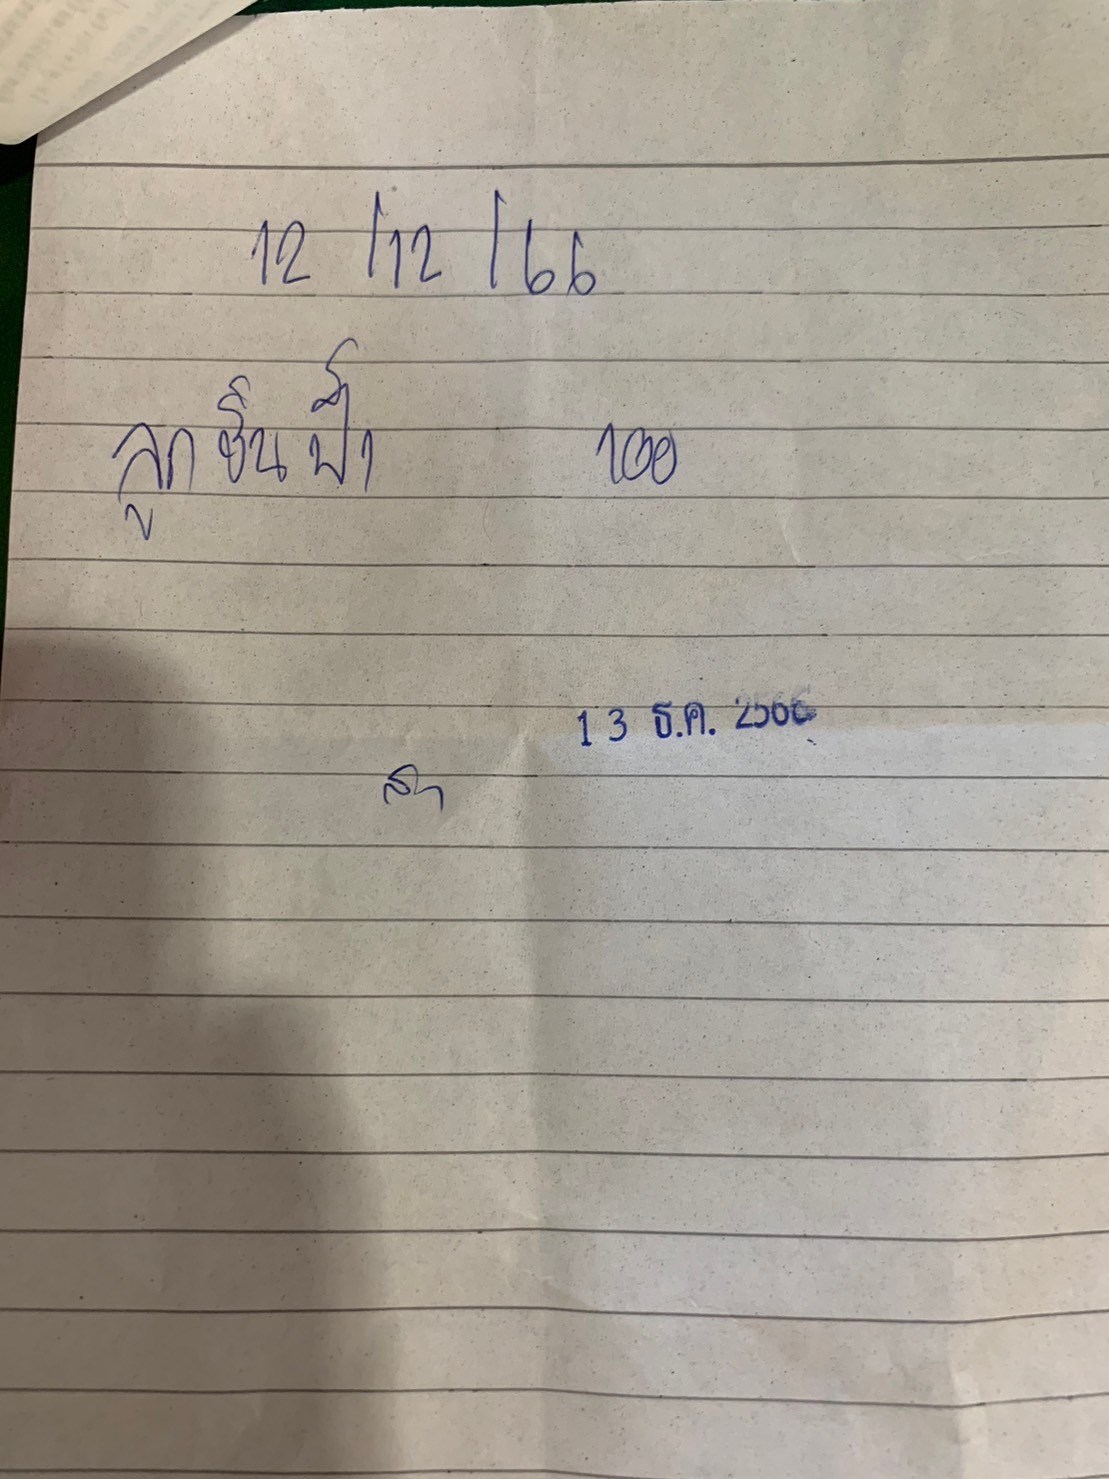 12 /12 /66
ลูกชิ้นป๊า 100
13 ธ.ค. 2566